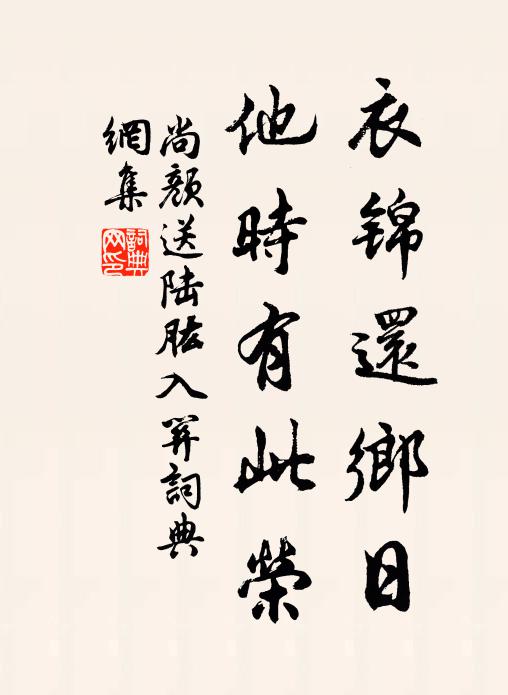 衣錦還鄉日
他時有此榮
尚顏送陆肱入關詞典
網集
詞典網印